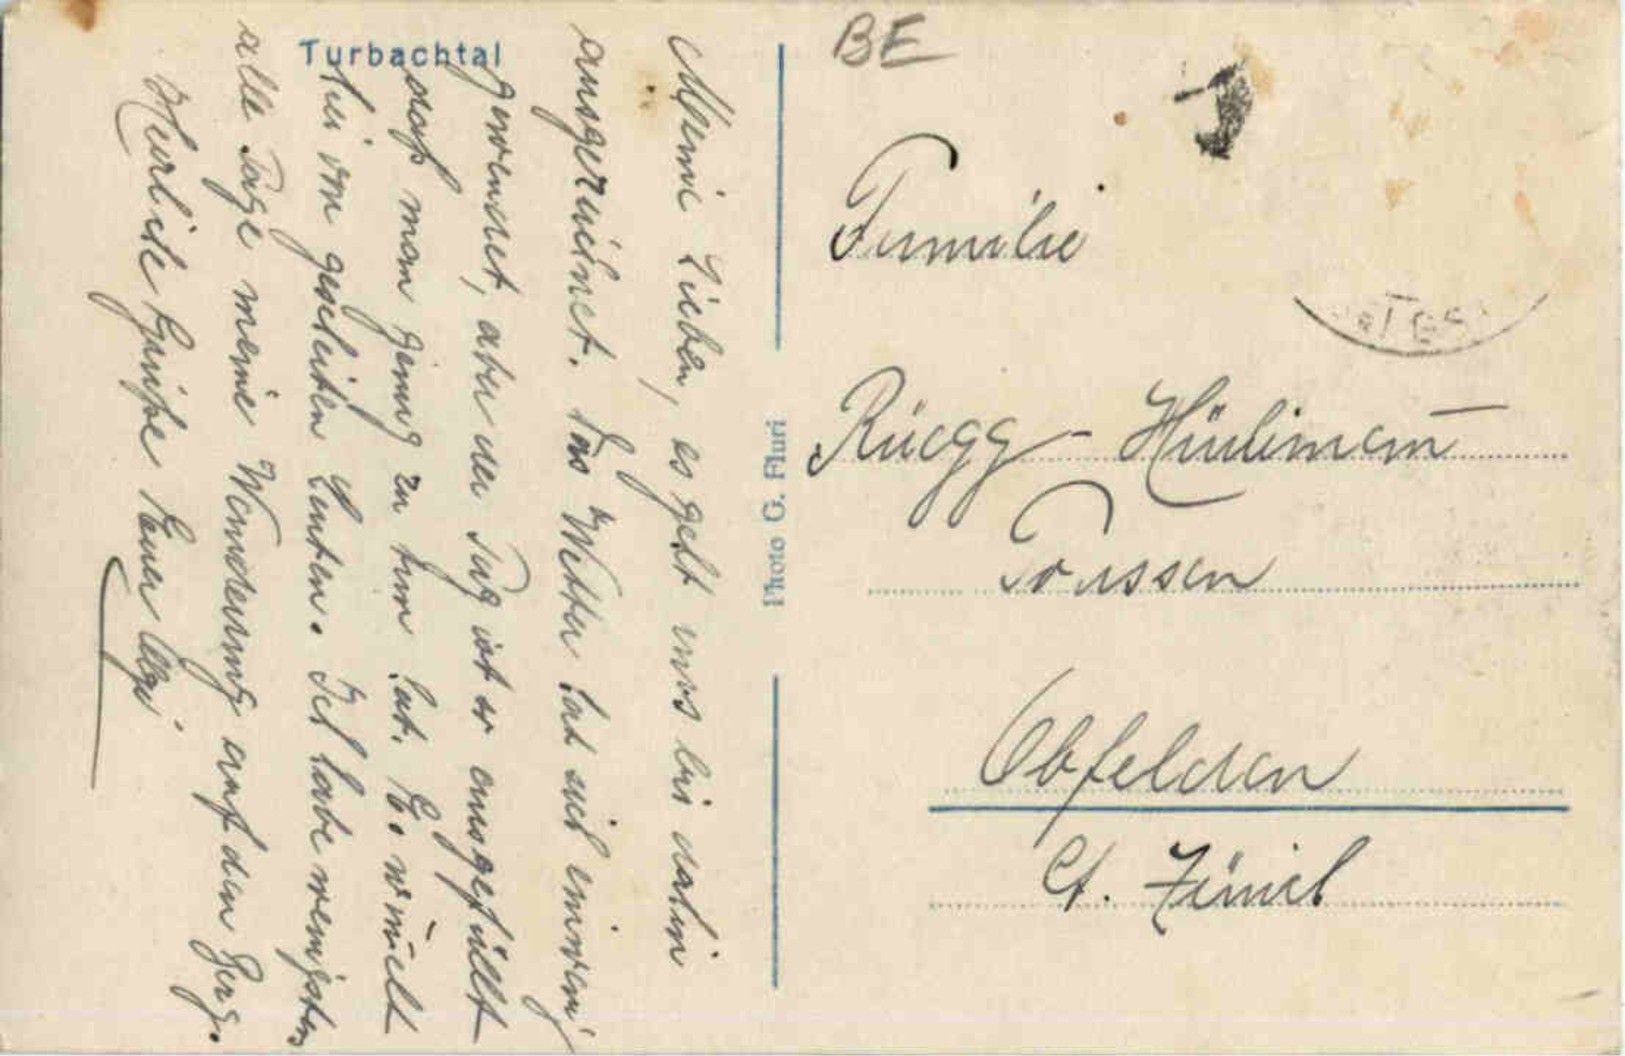 Turbachtal
Meine Lieben, es geht uns bis dahin
ausgezeichnet. Das Wetter hat sich ein wenig
gewendet, aber der Tag ist so ausgefüllt
daß man genug zu tun hat. Es
von gescheiten Leuten. Ich habe wenigstens
alle Tage meine Wanderung auf den Berg.
Herzliche Grüße Eurer
Photo G. Fluri
BE
Familie
Rüegg - Hürlimann
Toussen
Obfelden
Ct. Zürich